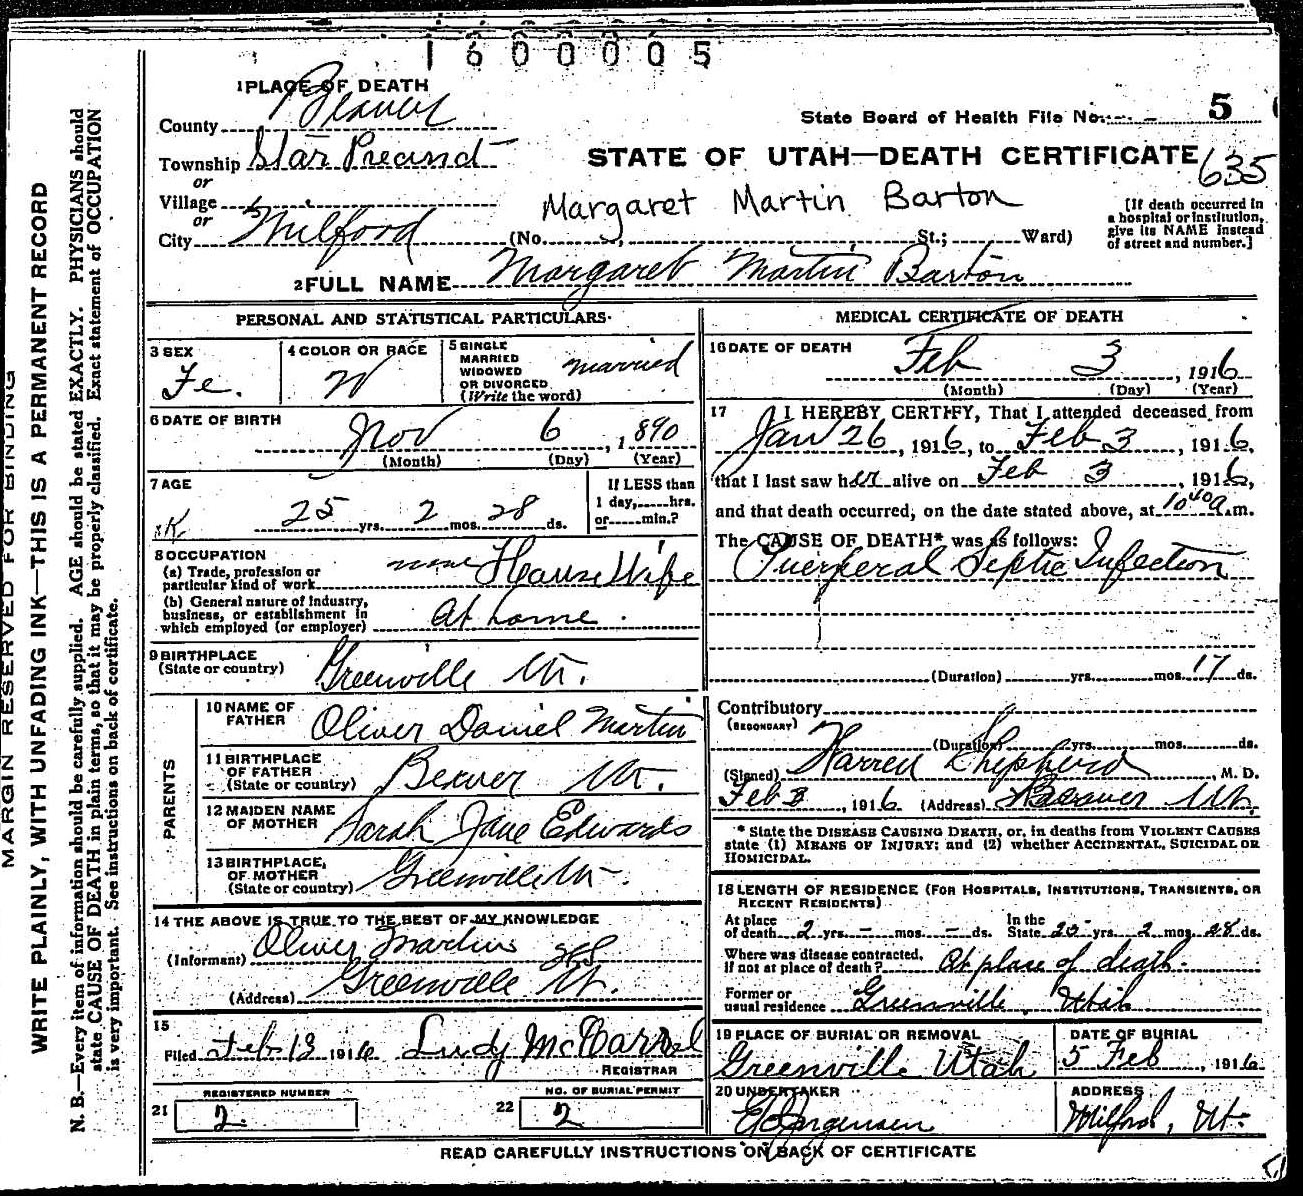 1600005
1 PLACE OF DEATH
County Beaver
State Board of Health File No. 5
Township Star Precinct
STATE OF UTAH—DEATH CERTIFICATE
635
or
Village
or
City Milford
Margaret Martin Barton
(No. St.; Ward)
[If death occurred in
a hospital or institution,
give its NAME instead
of street and number.]
2 FULL NAME Margaret Martin Barton
PERSONAL AND STATISTICAL PARTICULARS
3 SEX
Fe.
4 COLOR OR RACE
W
5 SINGLE
MARRIED
WIDOWED
OR DIVORCED
(Write the word)
married
6 DATE OF BIRTH
Nov 6, 1890
(Month) (Day) (Year)
7 AGE
25 yrs. 2 mos. 28 ds.
If LESS than
1 day,.....hrs.
or.....min.?
8 OCCUPATION
(a) Trade, profession or
particular kind of work none HouseWife
(b) General nature of industry,
business, or establishment in
which employed (or employer) At home
9 BIRTHPLACE
(State or country) Greenville Ut.
PARENTS
10 NAME OF
FATHER Oliver Daniel Martin
11 BIRTHPLACE
OF FATHER
(State or country) Beaver Ut.
12 MAIDEN NAME
OF MOTHER Sarah Jane Edwards
13 BIRTHPLACE
OF MOTHER
(State or country) Greenville Ut.
14 THE ABOVE IS TRUE TO THE BEST OF MY KNOWLEDGE
(Informant) Oliver Martin
(Address) Greenville Ut.
15
Filed Feb 13 1916 Ludy McCarrel
REGISTRAR
REGISTERED NUMBER
21 2
NO. OF BURIAL PERMIT
22 2
MEDICAL CERTIFICATE OF DEATH
16 DATE OF DEATH
Feb 3, 1916
(Month) (Day) (Year)
17 I HEREBY CERTIFY, That I attended deceased from
Jan 26, 1916, to Feb 3, 1916,
that I last saw her alive on Feb 3, 1916,
and that death occurred, on the date stated above, at 10 40 a.m.
The CAUSE OF DEATH* was as follows:
Puerperal Septic Infection
(Duration) yrs. mos. 17 ds.
Contributory
(SECONDARY)
(Duration) yrs. mos. ds.
(Signed) Warren Shepherd, M. D.
Feb 3, 1916 (Address) Beaver Ut.
* State the DISEASE CAUSING DEATH, or, in deaths from VIOLENT CAUSES
state (1) MEANS OF INJURY; and (2) whether ACCIDENTAL, SUICIDAL OR
HOMICIDAL.
18 LENGTH OF RESIDENCE (FOR HOSPITALS, INSTITUTIONS, TRANSIENTS, OR
RECENT RESIDENTS)
At place
of death 2 yrs. - mos. - ds.
In the
State 25 yrs. 2 mos. 28 ds.
Where was disease contracted,
if not at place of death? At place of death.
Former or
usual residence Greenville Utah
19 PLACE OF BURIAL OR REMOVAL
Greenville Utah
DATE OF BURIAL
5 Feb, 1916
20 UNDERTAKER
Jorgensen
ADDRESS
Milford, Ut.
READ CAREFULLY INSTRUCTIONS ON BACK OF CERTIFICATE
MARGIN RESERVED FOR BINDING
WRITE PLAINLY, WITH UNFADING INK—THIS IS A PERMANENT RECORD
N. B.—Every item of information should be carefully supplied. AGE should be stated EXACTLY. PHYSICIANS should
state CAUSE OF DEATH in plain terms, so that it may be properly classified. Exact statement of OCCUPATION
is very important. See instructions on back of certificate.